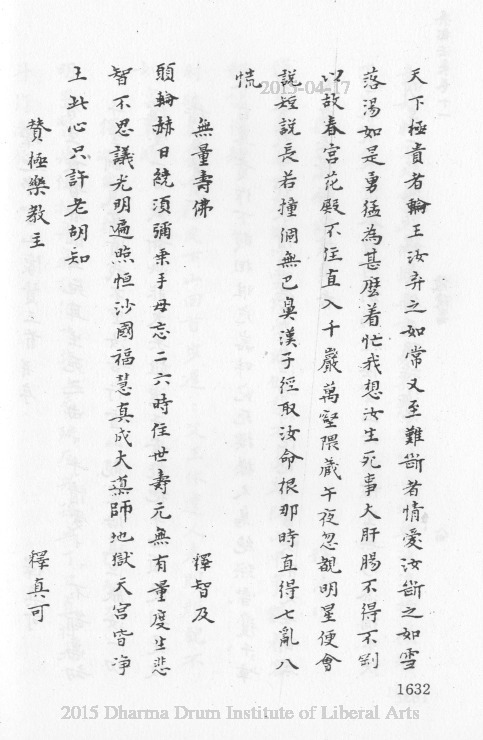 天下極貴者輪王汝弃之如常又至難斷者情愛汝斷之如雪
落湯如是勇猛為甚麼着忙我想汝生死事大肝腸不得不剖
以故春宮花殿不住直入千巖萬壑隈藏午夜忽覩明星便會
說短說長若撞個無巴鼻漢子經取汝命根那時直得七亂八
慌
無量壽佛 釋智及
頭輪赫日繞須彌朶手母忘二六時住世壽元無有量度生悲
智不思議光明遍照恒沙國福慧真成大藥師地獄天宮皆凈
土此心只許老胡知
贊極樂教主 釋真可
1632
2015-04-17
2015 Dharma Drum Institute of Liberal Arts